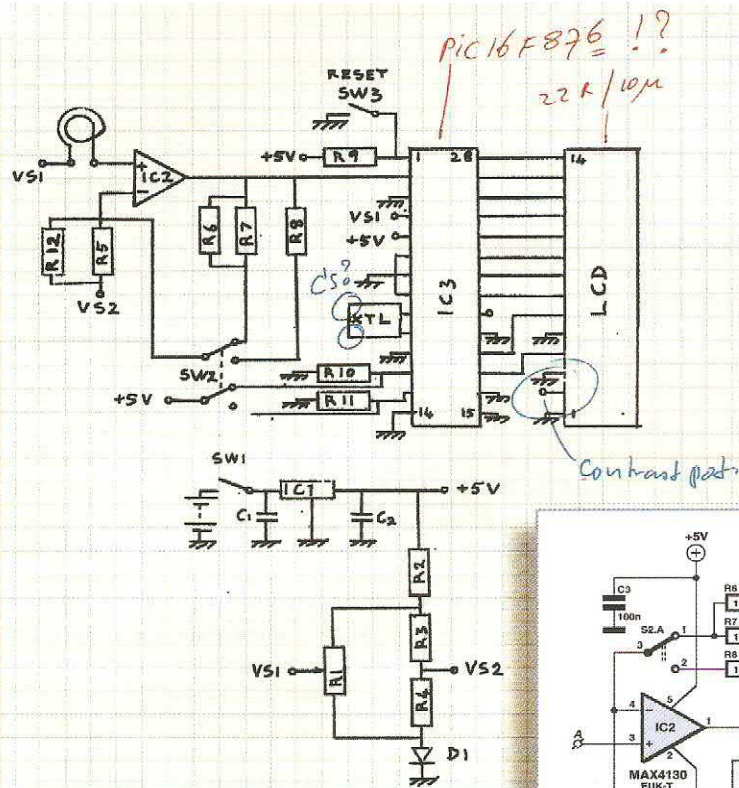 PiC16F876 !?
22R/10µ
RESET
SW3
+5V
R9
1
28
14
VS1
+
-
IC2
R6
R7
R8
VS1
+5V
R12
R5
VS2
C's?
XTL
IC3
LCD
SW2
R10
R11
+5V
14
15
1
Contrast pot
SW1
IC1
+5V
C1
C2
R2
R3
VS1
R1
VS2
R4
D1
+5V
C3
100n
R6
1
S2.A
1
R7
1
3
R8
1
2
4
5
A
3
IC2
1
2
MAX4130
EUK-T